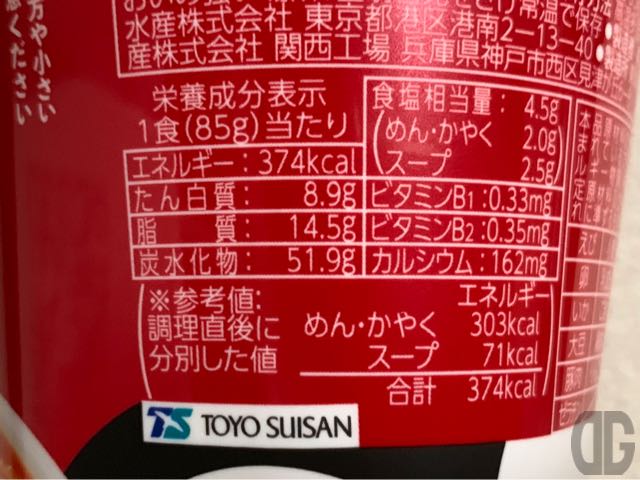 方や小さい
水産株式会社 東京都港区港南2-13-40
産株式会社 関西工場 兵庫県神戸市西区見津
栄養成分表示
1食(85g)当たり
エネルギー:374kcal
たん白質: 8.9g
脂 質: 14.5g
炭水化物: 51.9g
食塩相当量: 4.5g
(めん・かやく 2.0g
スープ 2.5g)
ビタミンB1:0.33mg
ビタミンB2:0.35mg
カルシウム:162mg
(※参考値:
調理直後に
分別した値
エネルギー
めん・かやく 303kcal
スープ 71kcal
合計 374kcal)
えび
卵
いか
大豆
豚肉
TS TOYO SUISAN
DG